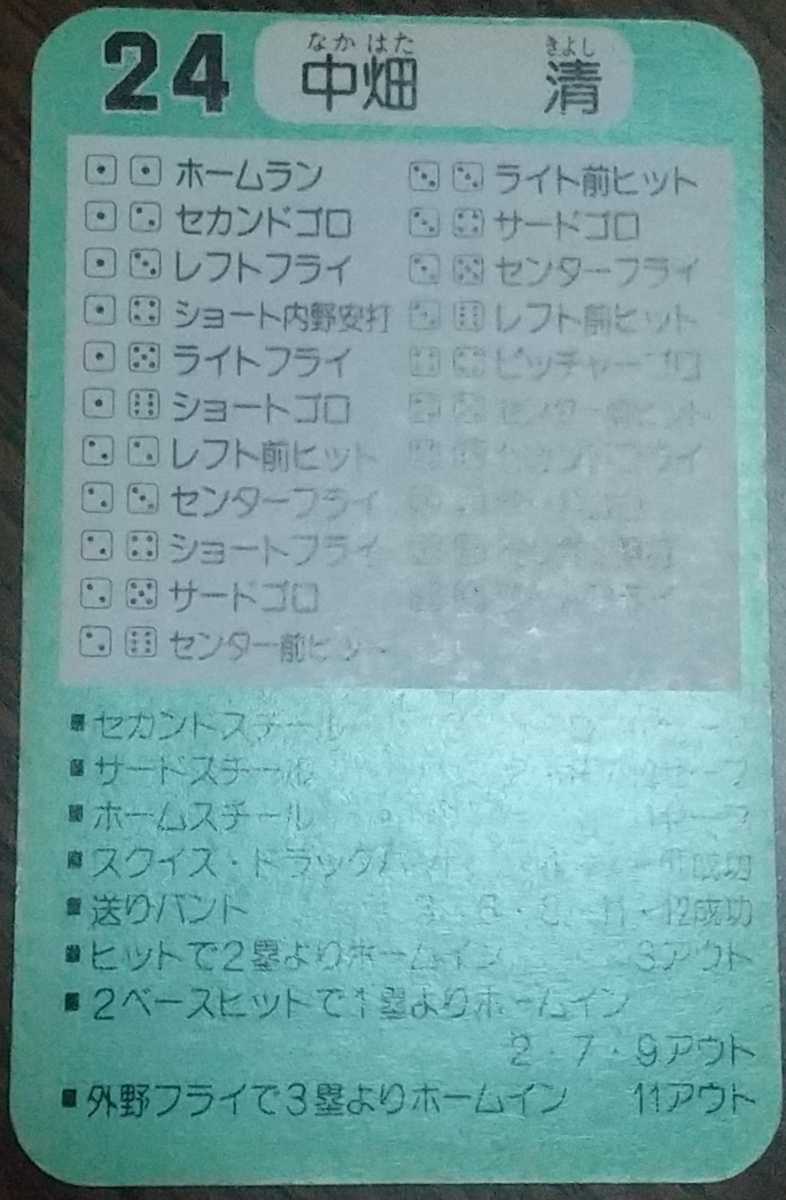 24 中畑 清
なか はた きよし
ホームラン
セカンドゴロ
レフトフライ
ショート内野安打
ライトフライ
ショートゴロ
レフト前ヒット
センターフライ
ショートフライ
サードゴロ
センター前ヒット
ライト前ヒット
サードゴロ
センターフライ
レフト前ヒット
ピッチャーゴロ
センター前ヒット
セカンドフライ
セカンドスチール
サードスチール
ホームスチール
スクイズ・ドラッグバント 成功
送りバント 11・12成功
ヒットで2塁よりホームイン 3アウト
2ベースヒットで1塁よりホームイン
2・7・9アウト
外野フライで3塁よりホームイン 11アウト